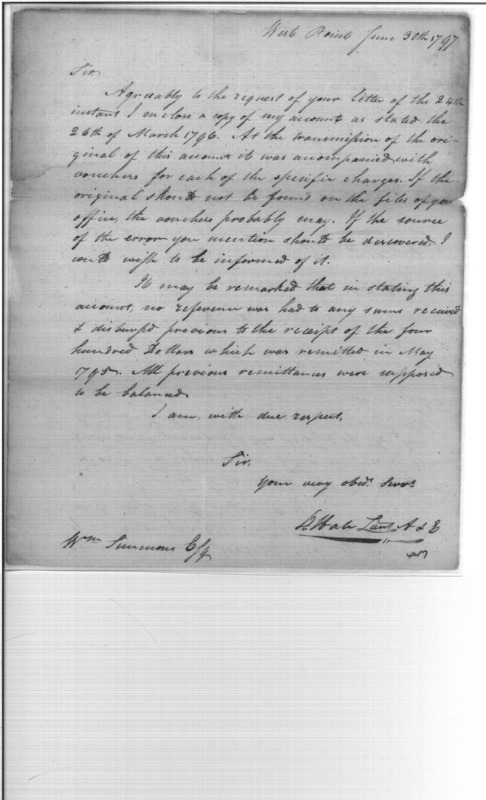 West Point June 30th 1797
Sir,
Agreeably to the request of your letter of the 24th
instant I enclose a copy of my account as stated the
26th of March 1796. At the transmission of the ori-
ginal of this account it was accompanied with
vouchers for each of the specific charges. If the
original should not be found on the files of your
office, the vouchers probably may. If the source
of the error you mention should be discovered I
could wish to be informed of it.
It may be remarked that in stating this
account, no reference was had to any sums received
& disburs'd previous to the receipt of the four
hundred Dollars which was remitted in May
1795. All previous remittances were supposed
to be balanced
I am, with due respect,
Sir,
Your very obedt. Servt.
Hale Lieut A & E
Wm Simmons Esq